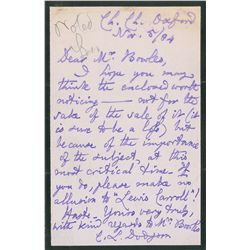 Noted
Ch. Ch. Oxford
Nov. 5/84
Dear Mr. Bowles,
I hope you may
think the enclosed worth
noticing — not for the
sake of the sale of it (it
is sure to be a loss) but
because of the importance
of the subject, at this
most critical time. If
you do, please make no
allusion to "Lewis Carroll"!
Haste. Yours very truly,
with kind regards to Mrs. Bowles
C. L. Dodgson